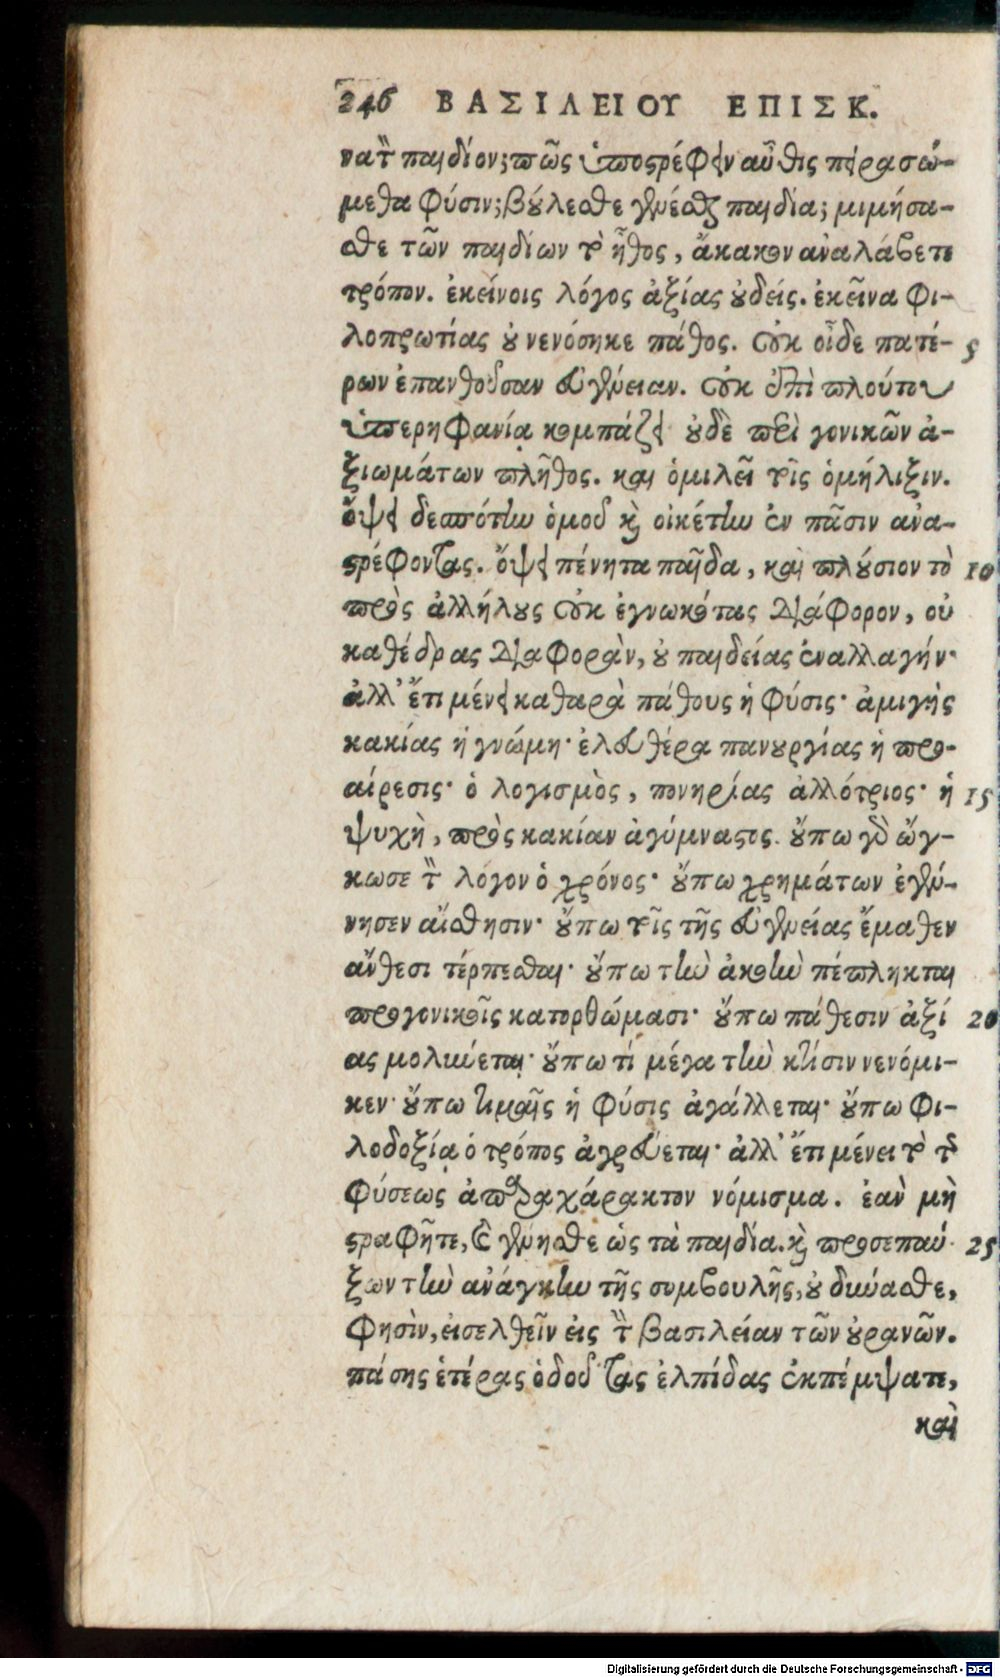 246 ΒΑΣΙΛΕΙΟΥ ΕΠΙΣΚ.
νατὸν παιδίον; πῶς ὑποστρέφειν αὖθις πειρασώ-
μεθα φύσιν; βούλεσθε γενέσθαι παιδία; μιμήσα-
σθε τῶν παιδίων τὸ ἦθος, ἄκακον ἀναλάβετε
τρόπον. ἐκείνοις λόγος ἀξίας οὐδείς. ἐκεῖνα φι-
λοπρωτίας οὐ νενόσηκε πάθος. οὐκ οἶδε πατέ- 5
ρων ἐπανθοῦσαν εὐγένειαν. οὐκ ἐπὶ πλούτου
ὑπερηφανίᾳ κομπάζει οὐδὲ περὶ γονικῶν ἀ-
ξιωμάτων πλῆθος. καὶ ὁμιλεῖ τοῖς ὁμήλιξιν.
ὄψει δεσπότην ὁμοῦ καὶ οἰκέτην ἐν πᾶσιν ἀνα-
στρέφοντας. ὄψει πένητα παῖδα, καὶ πλούσιον τὸ 10
πρὸς ἀλλήλους οὐκ ἐγνωκότας διάφορον, οὐ
καθέδρας διαφορὰν, οὐ παιδείας ἐναλλαγήν·
ἀλλ’ ἔτι μένει καθαρὰ πάθους ἡ φύσις· ἀμιγὴς
κακίας ἡ γνώμη· ἐλευθέρα πανουργίας ἡ προ-
αίρεσις· ὁ λογισμὸς, πονηρίας ἀλλότριος· ἡ 15
ψυχὴ, πρὸς κακίαν ἀγύμναστος. οὔπω γὰρ ὤγ-
κωσε τὸν λόγον ὁ χρόνος· οὔπω χρημάτων ἐγέν-
νησεν αἴσθησιν· οὔπω τοῖς τῆς εὐγενείας ἔμαθεν
ἄνθεσι τέρπεσθαι· οὔπω τὴν ἀκοὴν πέπληκται
προγονικοῖς κατορθώμασι· οὔπω πάθεσιν ἀξί 20
ας μολύνεται· οὔπω τὶ μέγα τὴν κτίσιν νενόμι-
κεν· οὔπω τιμαῖς ἡ φύσις ἀγάλλεται· οὔπω φι-
λοδοξίᾳ ὁ τρόπος ἀγρεύεται· ἀλλ’ ἔτι μένει τὸ τῆς
φύσεως ἀπαραχάρακτον νόμισμα. ἐὰν μὴ
στραφῆτε, καὶ γένησθε ὡς τὰ παιδία. καὶ προσεπαύ 25
ξων τὴν ἀνάγκην τῆς συμβουλῆς, οὐ δύνασθε,
φησὶν, εἰσελθεῖν εἰς τὴν βασιλείαν τῶν οὐρανῶν.
πάσης ἑτέρας ὁδοῦ τὰς ἐλπίδας ἐκπέμψατε,
καὶ
Digitalisierung gefördert durch die Deutsche Forschungsgemeinschaft - DFG